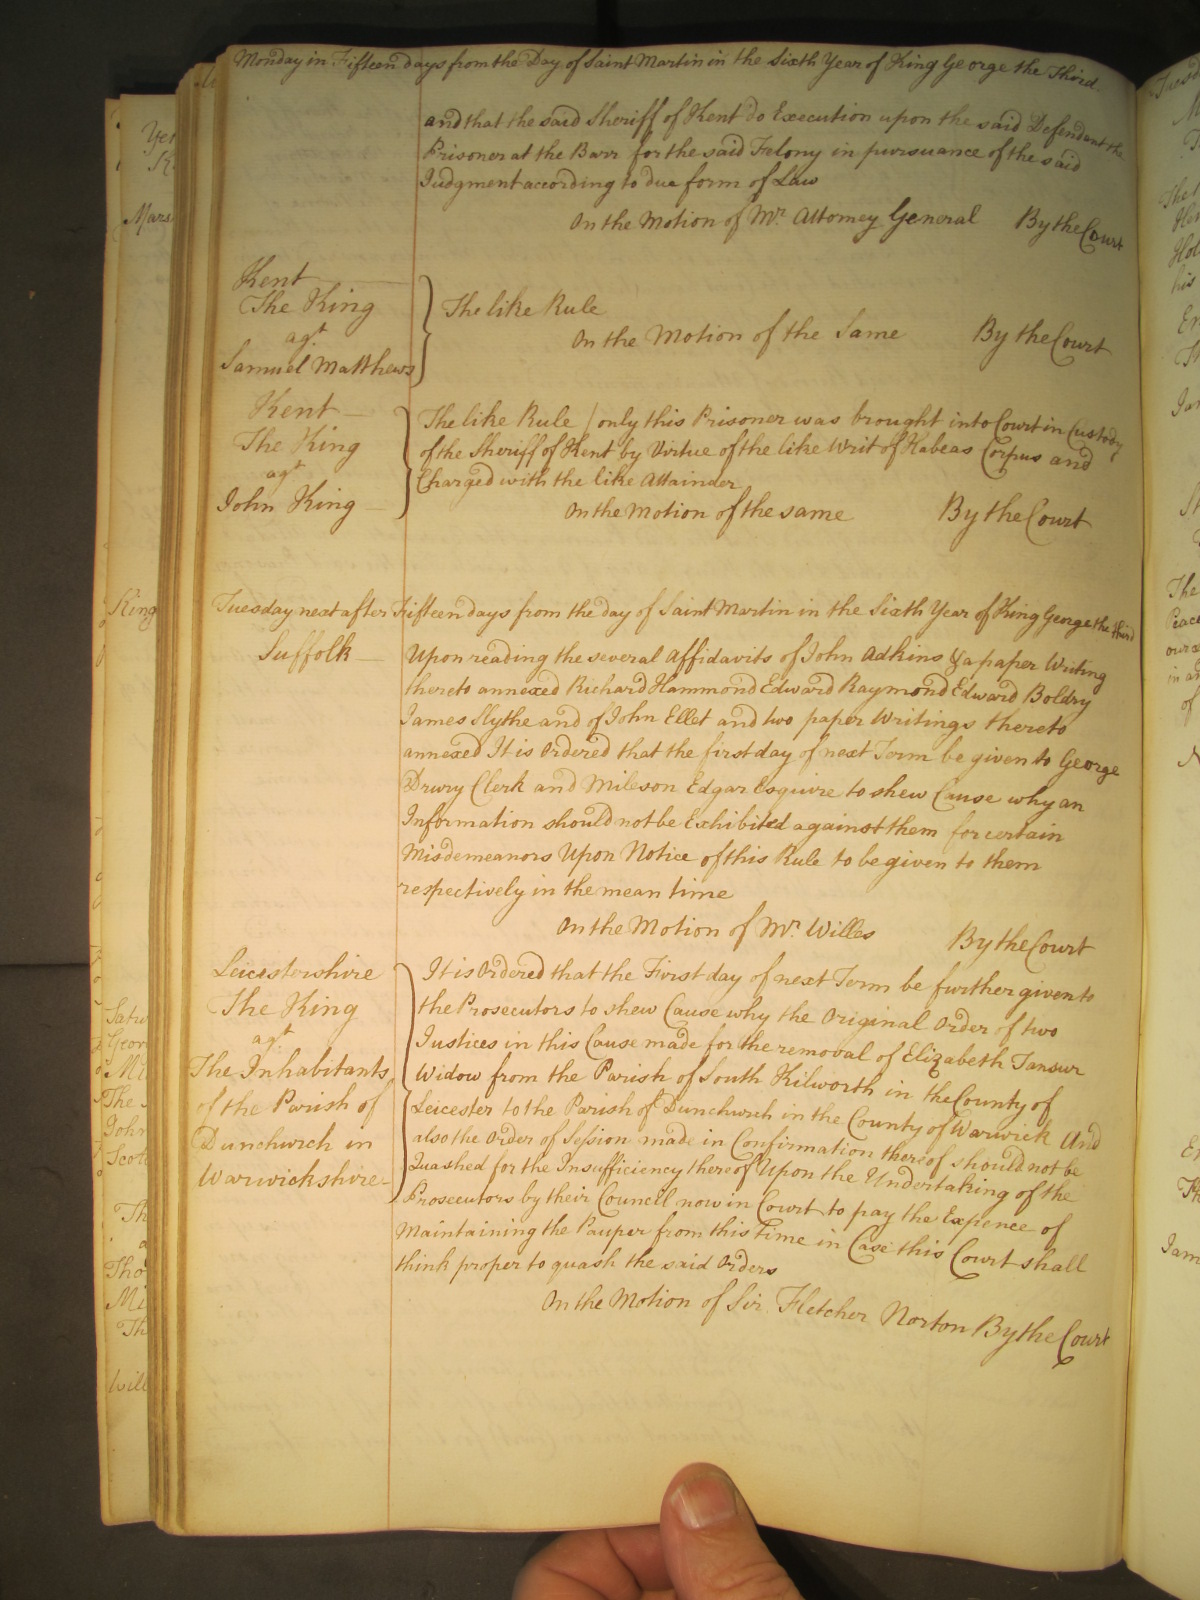 Monday in Fifteen days from the Day of Saint Martin in the Sixth Year of King George the Third.
and that the said Sheriff of Kent do Execution upon the said Defendant the
Prisoner at the Barr for the said Felony in pursuance of the said
Judgment according to due form of Law
On the Motion of Mr. Attorney General By the Court
Kent
The King
agt.
Samuel Matthews
The like Rule
On the Motion of the Same By the Court
Kent
The King
agt
John King
The like Rule / only this Prisoner was brought into Court in Custody
of the Sheriff of Kent by Virtue of the like Writ of Habeas Corpus and
Charged with the like Attainder
On the Motion of the same By the Court
Tuesday next after Fifteen days from the day of Saint Martin in the Sixth Year of King George the third
Suffolk
Upon reading the several Affidavits of John Adkins & a paper Writing
thereto annexed Richard Hammond Edward Raymond Edward Boldry
James Slythe and of John Ellet and two paper Writings thereto
annexed It is Ordered that the first day of next Term be given to George
Drury Clerk and Mileson Edgar Esquire to shew Cause why an
Information should not be Exhibited against them for certain
Misdemeanors Upon Notice of this Rule to be given to them
respectively in the mean time
On the Motion of Mr. Willes By the Court
Leicestershire
The King
agt
The Inhabitants
of the Parish of
Dunchurch in
Warwickshire
It is Ordered that the First day of next Term be further given to
the Prosecutors to shew Cause why the Original Order of two
Justices in this Cause made for the removal of Elizabeth Tansur
Widow from the Parish of South Kilworth in the County of
Leicester to the Parish of Dunchurch in the County of Warwick And
also the Order of Session made in Confirmation thereof should not be
Quashed for the Insufficiency thereof Upon the Undertaking of the
Prosecutors by their Council now in Court to pay the Expence of
Maintaining the Pauper from this time in Case this Court shall
think proper to quash the said Orders
On the Motion of Sir Fletcher Norton By the Court